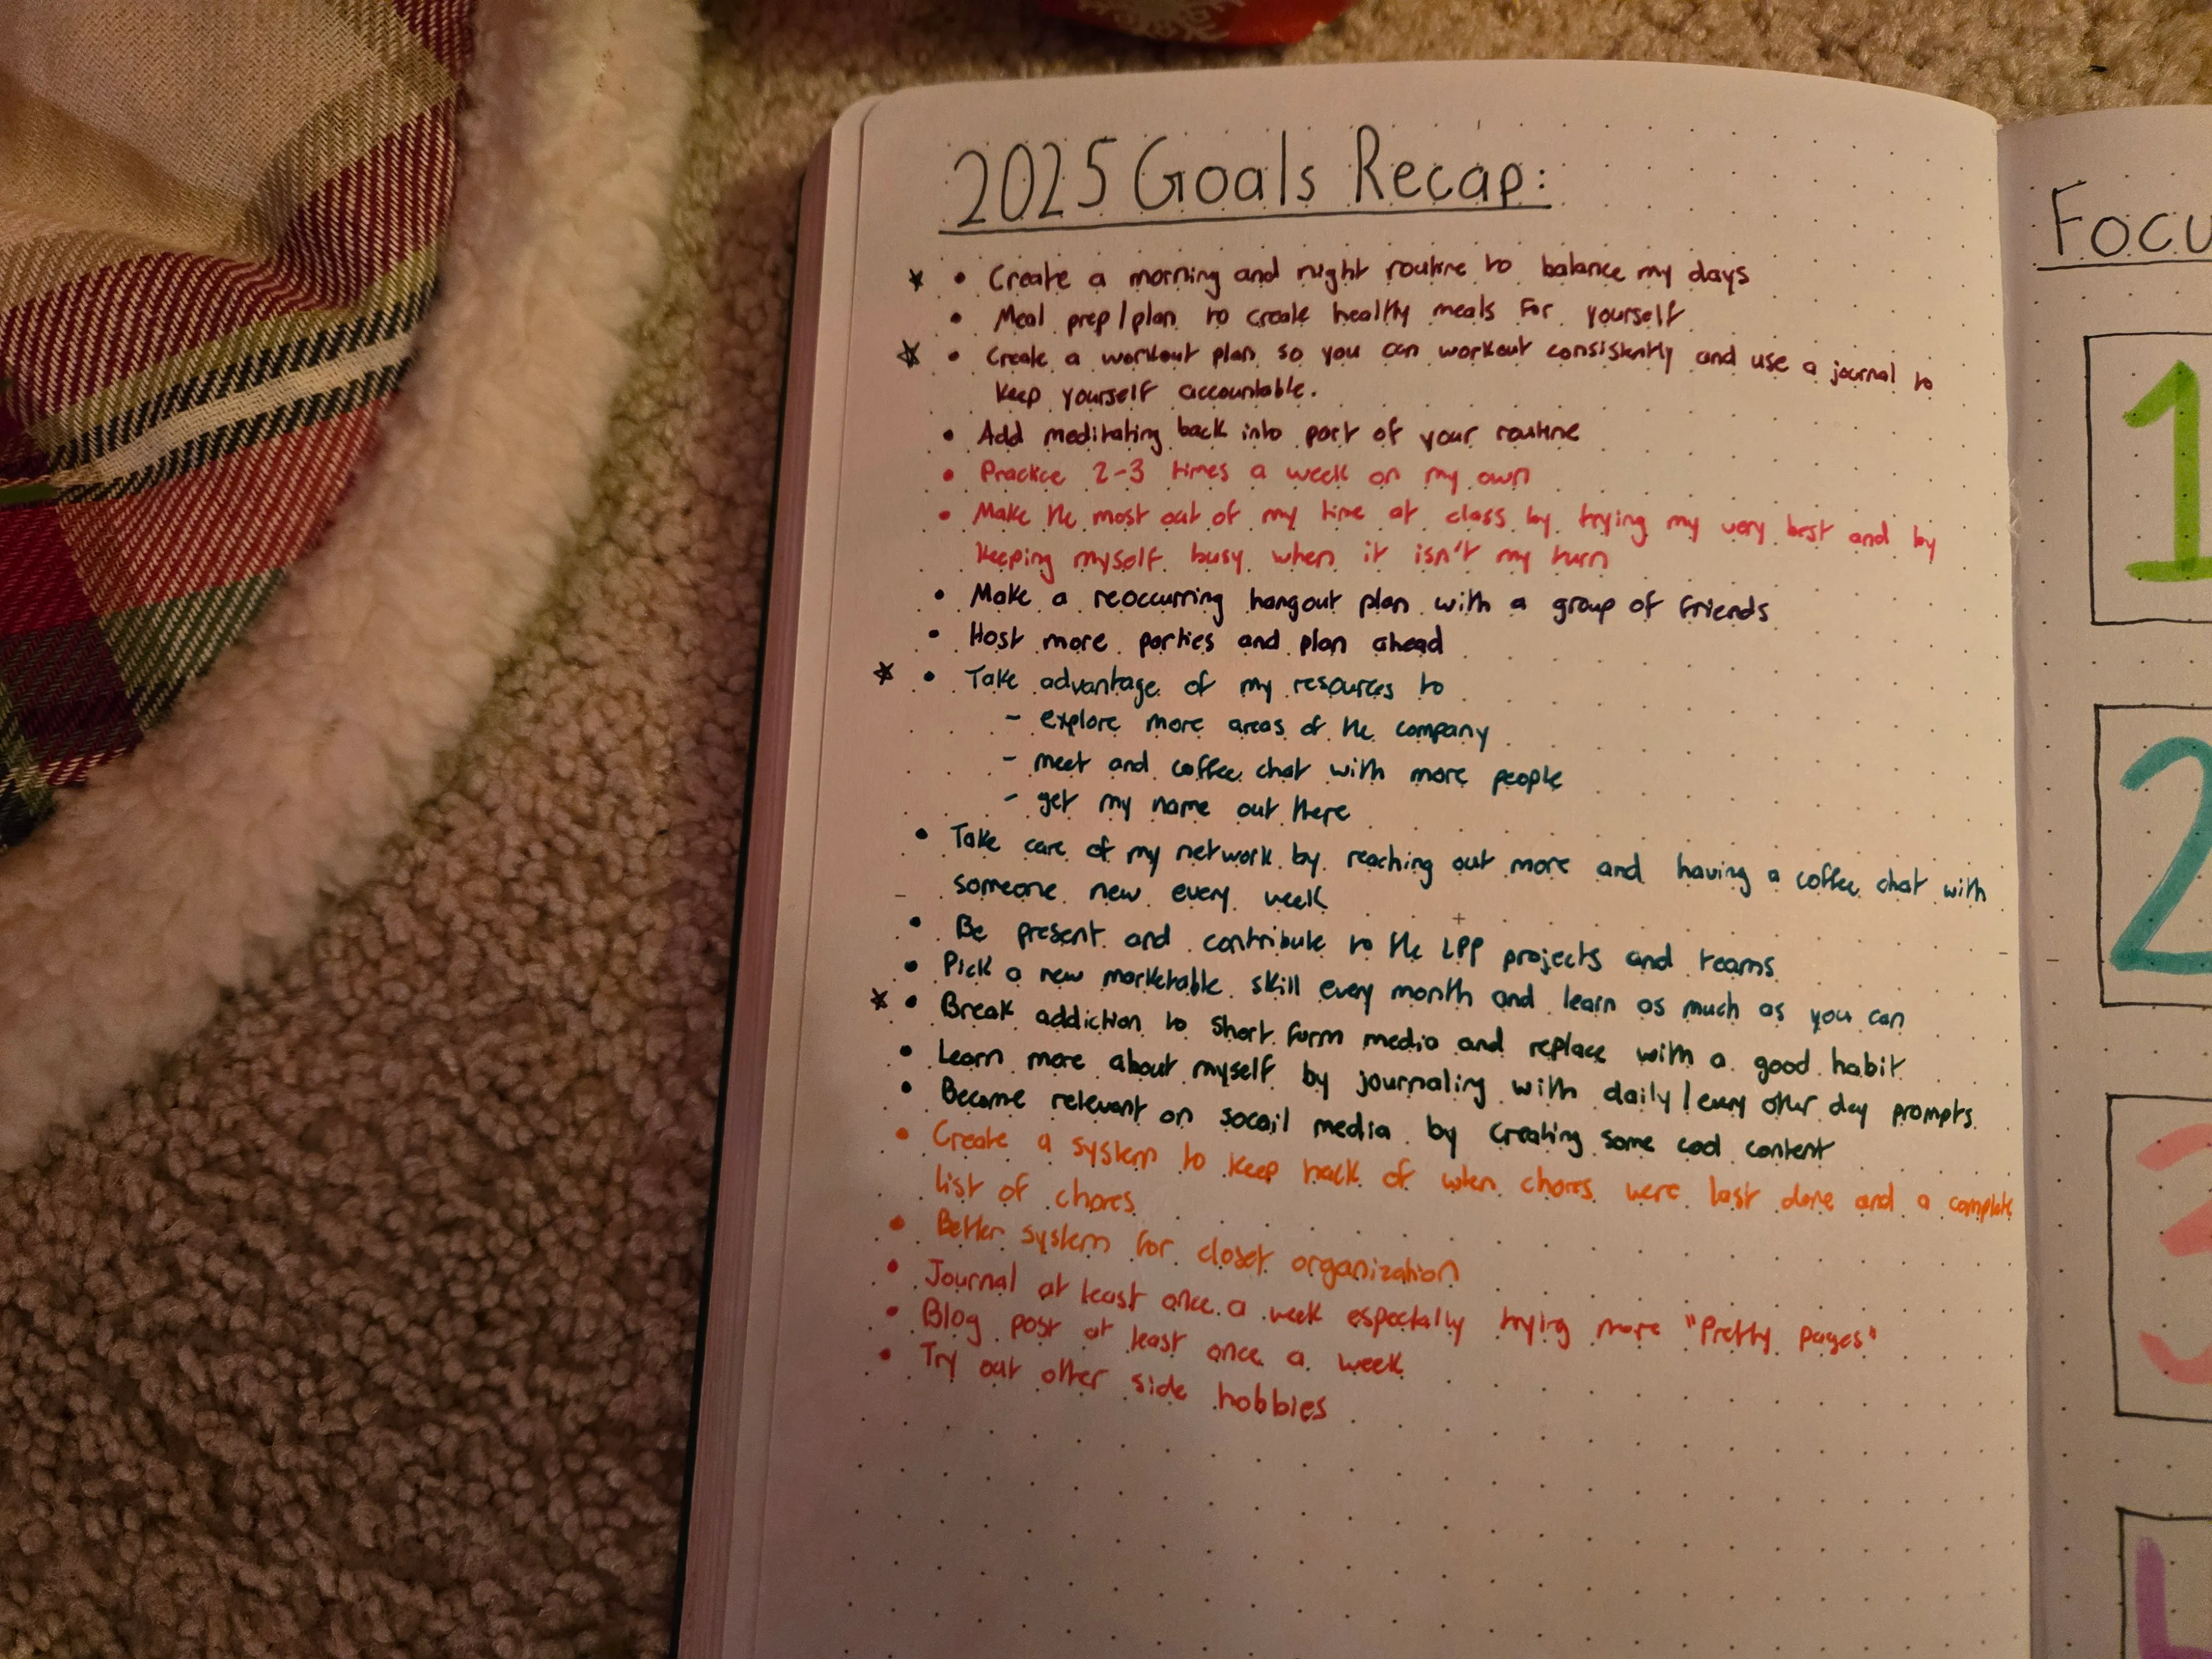 2025 Goals Recap:
☆ • Create a morning and night routine to balance my days
• Meal prep/plan to create healthy meals for yourself
☆ • Create a workout plan so you can workout consistently and use a journal to
keep yourself accountable.
• Add meditating back into part of your routine
• Practice 2-3 times a week on my own
• Make the most out of my time at class by trying my very best and by
keeping myself busy when it isn't my turn
• Make a reoccurring hangout plan with a group of friends
• Host more parties and plan ahead
☆ • Take advantage of my resources to
- explore more areas of the company
- meet and coffee chat with more people
- get my name out there
• Take care of my network by reaching out more and having a coffee chat with
someone new every week
• Be present and contribute to the LPP projects and teams
• Pick a new marketable skill every month and learn as much as you can
☆ • Break addiction to short form media and replace with a good habit
• Learn more about myself by journaling with daily/every other day prompts
• Become relevant on socail media by creating some cool content
• Create a system to keep track of when chores were last done and a complete
list of chores
• Better system for closet organization
• Journal at least once a week especially trying more "Pretty pages"
• Blog post at least once a week
• Try out other side hobbies
Focu
1
2
3